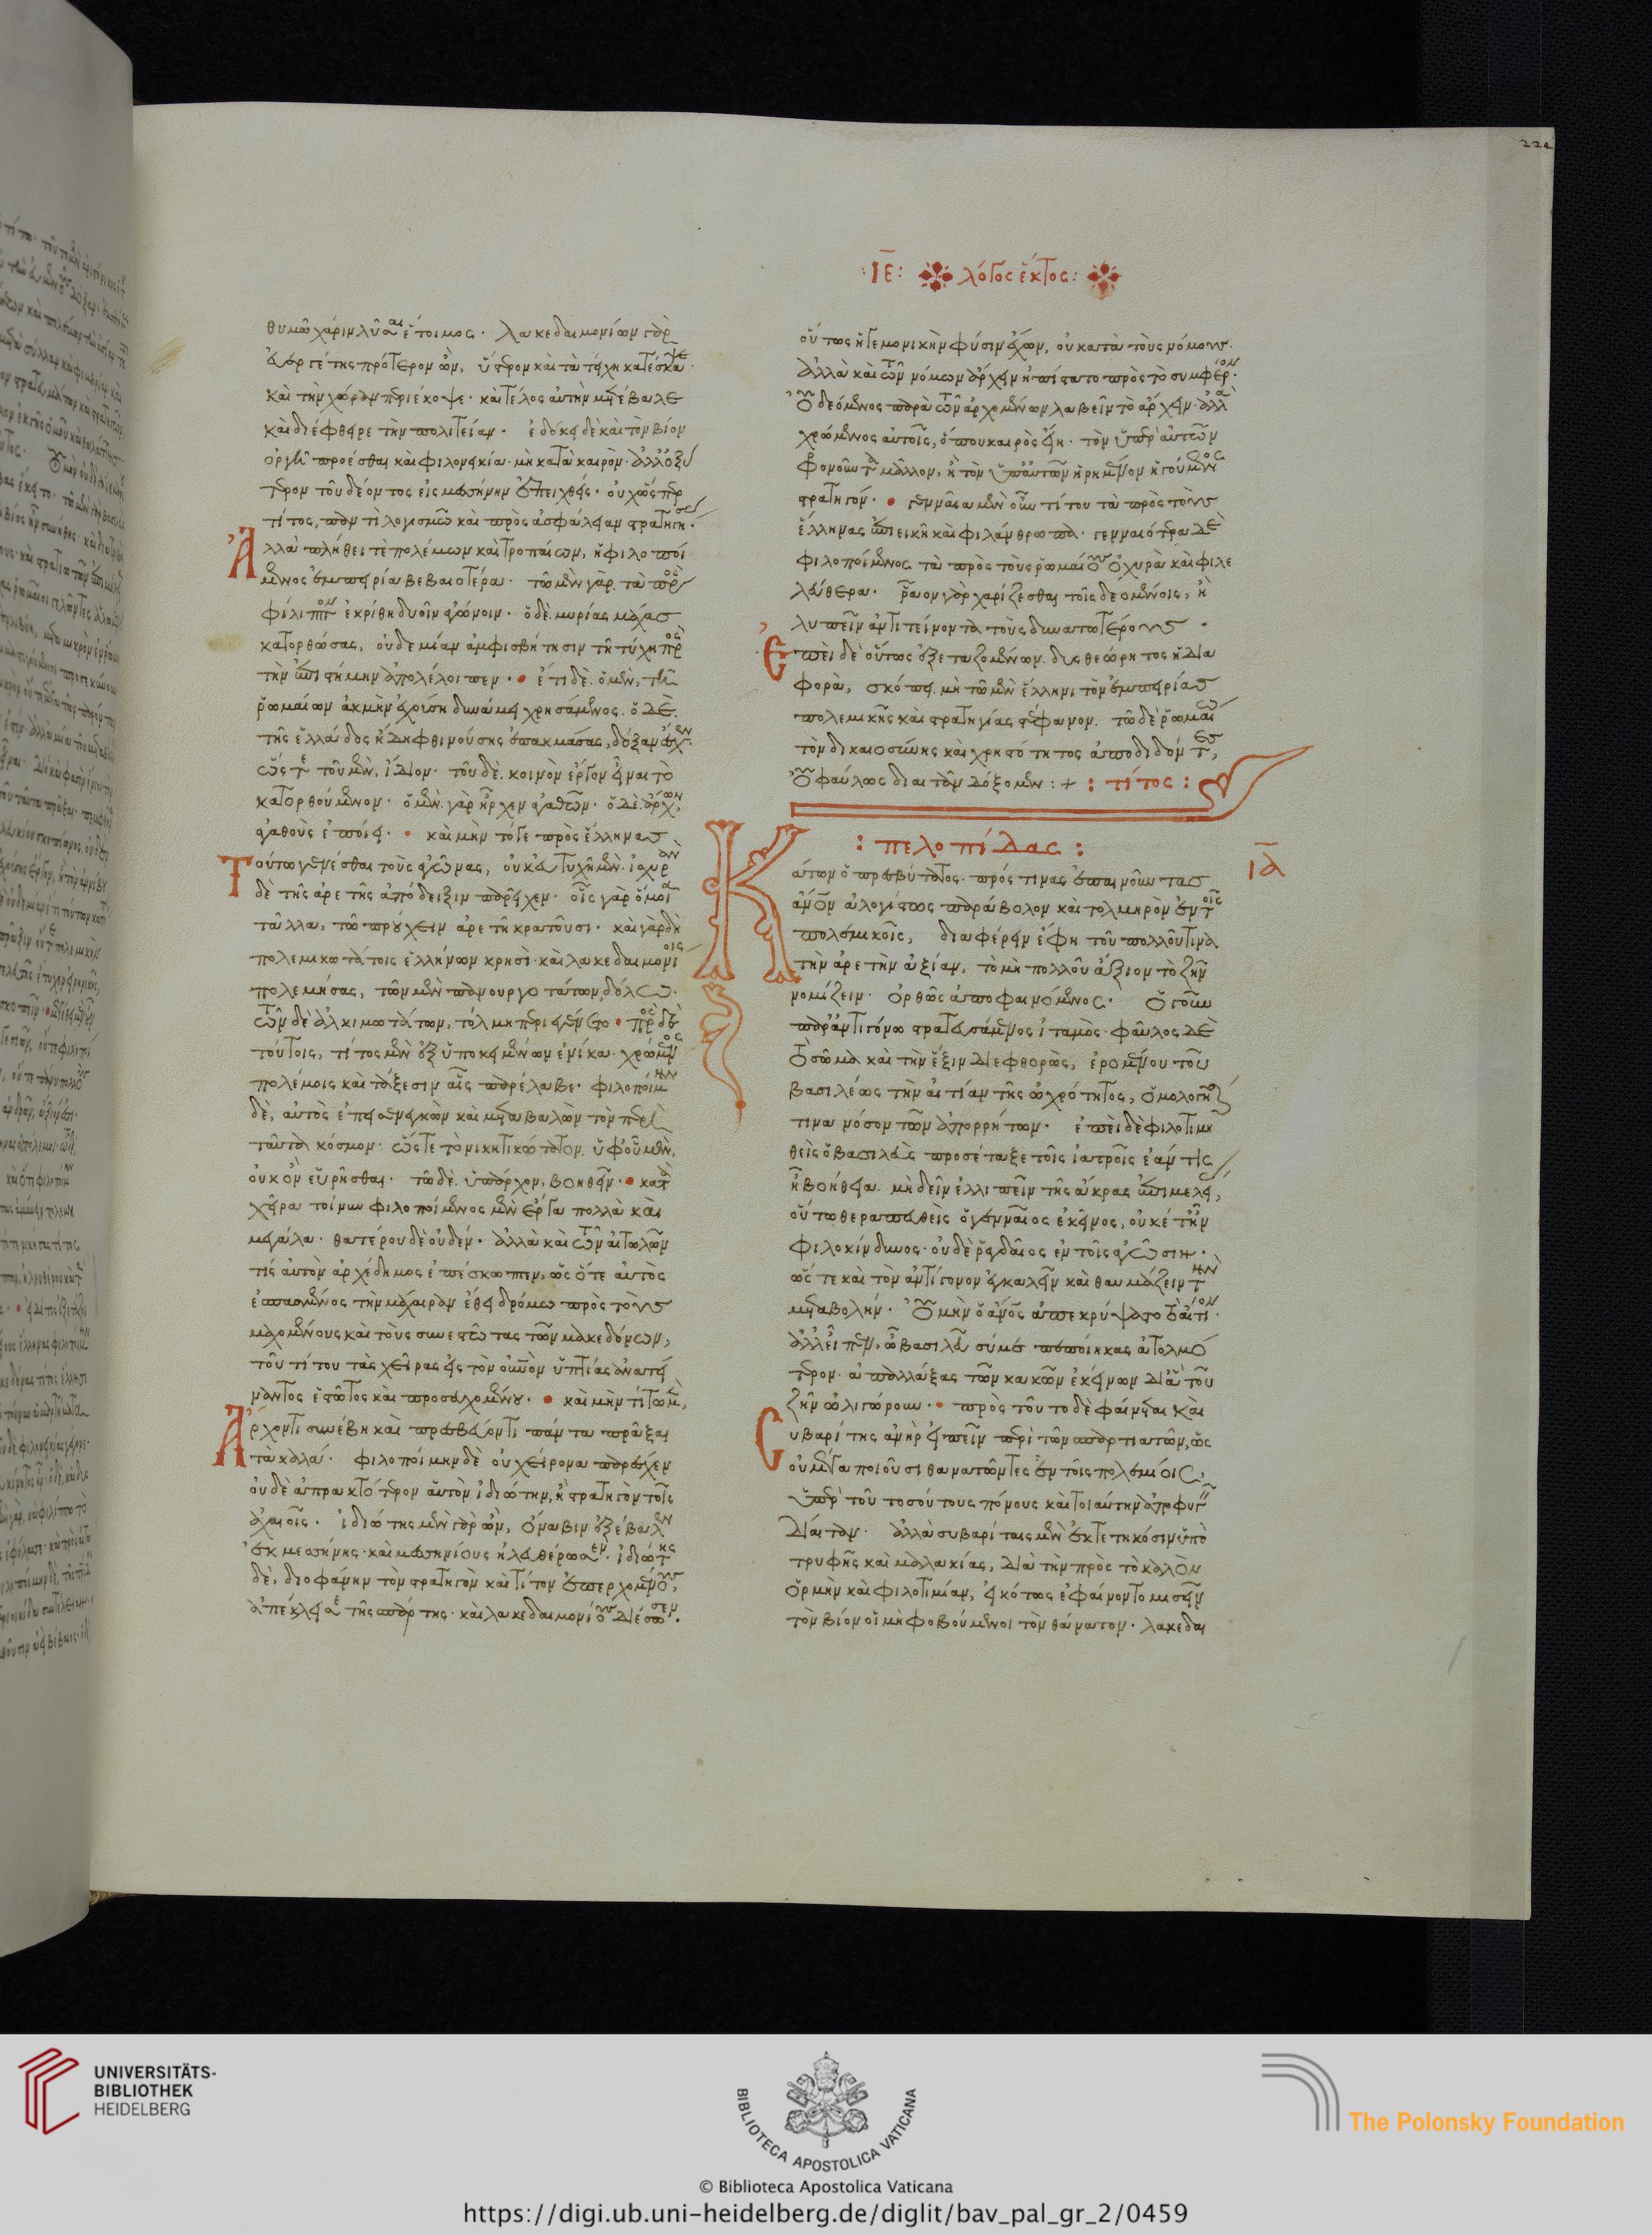 ΙΕ: λόγος ἕκτος:
224
θυμῶ χάριν λῦσαι ἕτοιμος· λακεδαιμονίων γὰρ
εὐεργέτης πρότερον ὢν, ὕστερον καὶ τὰ τείχη κατέσκαψε·
καὶ τὴν χώραν περιέκοψε· καὶ τέλος αὐτὴν μετέβαλε
καὶ διέφθειρε τὴν πολιτείαν· ἐδόκει δὲ καὶ τὸν βίον
ὀργῆ προέσθαι καὶ φιλονεικία· μὴ κατὰ καιρὸν· ἀλλ' ὀξύ
τερον τοῦ δέοντος εἰς μεσήνην ἐπειχθείς· οὐχ ὥσπερ
τίτος, πάντα λογισμῶ καὶ πρὸς ἀσφάλειαν στρατηγήσας·
Ἀλλὰ πλήθει τὲ πολέμων καὶ τροπαίων, ἡ φιλοποί
μενος ἐμπειρία βεβαιοτέρα· τῶ μὲν γὰρ τὰ πρὸς
φίλιππον ἐκρίθη δυοῖν ἀγώνοιν· ὁ δὲ μυρίας μάχας
κατορθώσας, οὐδεμίαν ἀμφισβήτησιν τῆ τύχη πρὸς
τὴν ἐπιστήμην ἀπολέλοιπεν· ἔτι δὲ ὁ μὲν, τῆ
ῥωμαίων ἀκμὴν ἐχούση δυνάμει χρησάμενος. ὁ δὲ
τῆς ἑλλάδος ἤδη φθινούσης ἐπακμάσας, δόξαν ἔσχεν·
ὥστε τοῦ μὲν, ἴδιον· τοῦ δὲ, κοινὸν ἔργον εἶναι τὸ
κατορθούμενον· ὁ μὲν γὰρ ἦρχεν ἀγαθῶν· ὁ δὲ ἄρχων,
ἀγαθοὺς ἐποίει· καὶ μὴν τό γε πρὸς ἕλληνας
Τούτω γενέσθαι τοὺς ἀγῶνας, οὐκ εὐτυχῆ μὲν· ἰσχυρὰν
δὲ τῆς ἀρετῆς ἀπόδειξιν παρεῖχεν· οἷς γὰρ ὅμοια
τἄλλα, τῶ προύχειν ἀρετῆ κρατοῦσι· καὶ γὰρ δὴ
πολεμικωτάτοις ἑλλήνων κρησὶ· καὶ λακεδαιμονίοις
πολεμήσας, τῶν μὲν πανουργοτάτων, δόλω·
τῶν δὲ ἀλκιμωτάτων, τόλμη περιεγένετο· πρὸς δὲ
τούτοις, τίτος μὲν ἐξ ὑποκειμένων ἐνίκα· χρώμενος
πολέμοις καὶ τάξεσιν αἷς παρέλαβε· φιλοποίμην
δὲ, αὐτὸς ἐπεισενεγκὼν καὶ μεταβαλὼν τὸν περὶ
ταῦτα κόσμον· ὥστε τὸ νικητικώτατον, ὑφ' οὗ μὲν,
οὐκ ὂν εὑρῆσθαι· τῶ δὲ, ὑπάρχον, βοηθεῖν· κατὰ
χεῖρα τοίνυν φιλοποίμενος μὲν ἔργα πολλὰ καὶ
μεγάλα· θατέρου δὲ οὐδέν· ἀλλὰ καὶ τῶν αἰτωλῶν
τὶς αὐτὸν ἀρχέδημος ἐπέσκωπτεν, ὡς ὅτε αὐτὸς
ἐσπασμένος τὴν μάχαιραν ἔθει δρόμω πρὸς τοὺς
μαχομένους καὶ τοὺς συνεστῶτας τῶν μακεδόνων,
τοῦ τίτου τὰς χεῖρας εἰς τὸν οὐρανὸν ὑπτίας ἀνατεί
ναντος ἑστῶτος καὶ προσευχομένου· καὶ μὴν τίτω μὲν,
Ἄρχοντι συνέβη καὶ πρεσβεύοντι πάντα πρᾶξαι
τὰ καλά· φιλοποίμην δὲ οὐ χείρονα παρεῖχεν
οὐδὲ ἀπρακτότερον αὑτὸν ἰδιώτην, ἢ στρατηγὸν τοῖς
ἀχαιοῖς· ἰδιώτης μὲν γὰρ ὢν, νάβιν ἐξέβαλεν
ἐκ μεσήνης· καὶ μεσηνίους ἠλευθέρωσεν· ἰδιώτης
δὲ, διοφάνην τὸν στρατηγὸν καὶ τίτον ἐπερχομένους,
ἀπέκλεισε τῆς σπάρτης· καὶ λακεδαιμονίους διέσωσεν·
οὕτως ἡγεμονικὴν φύσιν ἔχων, οὐ κατὰ τοὺς νόμους·
ἀλλὰ καὶ τῶν νόμων ἄρχειν ἠπίστατο πρὸς τὸ συμφέρον·
Οὐ δεόμενος παρὰ τῶν ἀρχομένων λαβεῖν τὸ ἄρχειν· ἀλλὰ
χρώμενος αὐτοῖς, ὅπου καιρὸς εἴη· τὸν ὑπὲρ αὐτῶν
φρονοῦντα μᾶλλον, ἢ τὸν ὑπ' αὐτῶν ἡρημένον ἡγούμενος
στρατηγόν· γενναῖα μὲν οὖν τίτου τὰ πρὸς τοὺς
ἕλληνας ἐπιεικῆ καὶ φιλάνθρωπα· γενναιότερα δὲ
φιλοποίμενος τὰ πρὸς τοὺς ῥωμαίους ὀχυρὰ καὶ φιλε
λεύθερα· ῥᾶον γὰρ χαρίζεσθαι τοῖς δεομένοις, ἢ
λυπεῖν ἀντιτείνοντα τοὺς δυνατωτέρους·
Ἐπεὶ δὲ οὕτως ἐξεταζομένων. δυσθεώρητος ἡ δια
φορὰ, σκόπει, μὴ τῶ μὲν ἕλληνι τὸν ἐμπειρίας
πολεμικῆς καὶ στρατηγίας στέφανον. τῶ δὲ ῥωμαίω
τὸν δικαιοσύνης καὶ χρηστότητος ἀποδιδόντες,
Οὐ φαύλως διαιτᾶν δόξομεν: + : τίτος :
: πελοπίδας :
ΙΑ
Κάτων ὁ πρεσβύτατος· πρός τινας ἐπαινοῦντας
ἄνθρωπον ἀλογίστως παράβολον καὶ τολμηρὸν ἐν τοῖς
πολεμικοῖς, διαφέρειν ἔφη τοῦ πολλοῦ τινὰ
τὴν ἀρετὴν ἀξίαν, τὸ μὴ πολλοῦ ἄξιον τὸ ζῆν
νομίζειν· Ὀρθῶς ἀποφαινόμενος· Ὁ γοῦν
παρ' ἀντιγόνω στρατευσάμενος ἰταμὸς· φαῦλος δὲ
τὸ σῶμα καὶ τὴν ἕξιν διεφθορὼς, ἐρομένου τοῦ
βασιλέως τὴν αἰτίαν τῆς ὠχρότητος, ὁμολογῆσαι
τινα νόσον τῶν ἀπορρήτων· ἐπεὶ δὲ φιλοτιμη
θεὶς ὁ βασιλεὺς προσέταξε τοῖς ἰατροῖς ἐάν τις
ἦ βοήθεια. μὴ δεῖν ἐλλιπεῖν τῆς ἄκρας ἐπιμελείας,
οὕτω θεραπευθεὶς ὁ γενναῖος ἐκεῖνος, οὐκέτ' ἦν
φιλοκίνδυνος· οὐδὲ ῥαγδαῖος ἐν τοῖς ἀγῶσιν·
ὥστε καὶ τὸν ἀντίγονον ἐγκαλεῖν καὶ θαυμάζειν τὴν
μεταβολήν· Οὐ μὴν ὁ ἄνθρωπος ἀπεκρύψατο τὸ αἴτιον·
ἀλλ' εἶπεν, ὦ βασιλεῦ σύ με πεποίηκας ἀτολμό
τερον· ἀπαλλάξας τῶν κακῶν ἐκείνων δι' ἃ τοῦ
ζῆν ὠλιγώρουν· πρὸς τοῦτο δὲ φαίνεται καὶ
Συβαρίτης ἀνὴρ εἰπεῖν περὶ τῶν σπαρτιατῶν, ὡς
οὐ μέγα ποιοῦσι θανατῶντες ἐν τοῖς πολέμοις,
ὑπὲρ τοῦ τοσούτους πόνους καὶ τοιαύτην ἀποφυγεῖν
δίαιταν· ἀλλὰ συβαρίταις μὲν ἐκτετηκόσιν ὑπὸ
τρυφῆς καὶ μαλακίας, διὰ τὴν πρὸς τὸ καλὸν
ὁρμὴν καὶ φιλοτιμίαν, εἰκότως ἐφαίνοντο μισεῖν
τὸν βίον οἱ μὴ φοβούμενοι τὸν θάνατον· λακεδαι
UNIVERSITÄTS-
BIBLIOTHEK
HEIDELBERG
BIBLIOTECA APOSTOLICA VATICANA
The Polonsky Foundation
© Biblioteca Apostolica Vaticana
https://digi.ub.uni-heidelberg.de/diglit/bav_pal_gr_2/0459